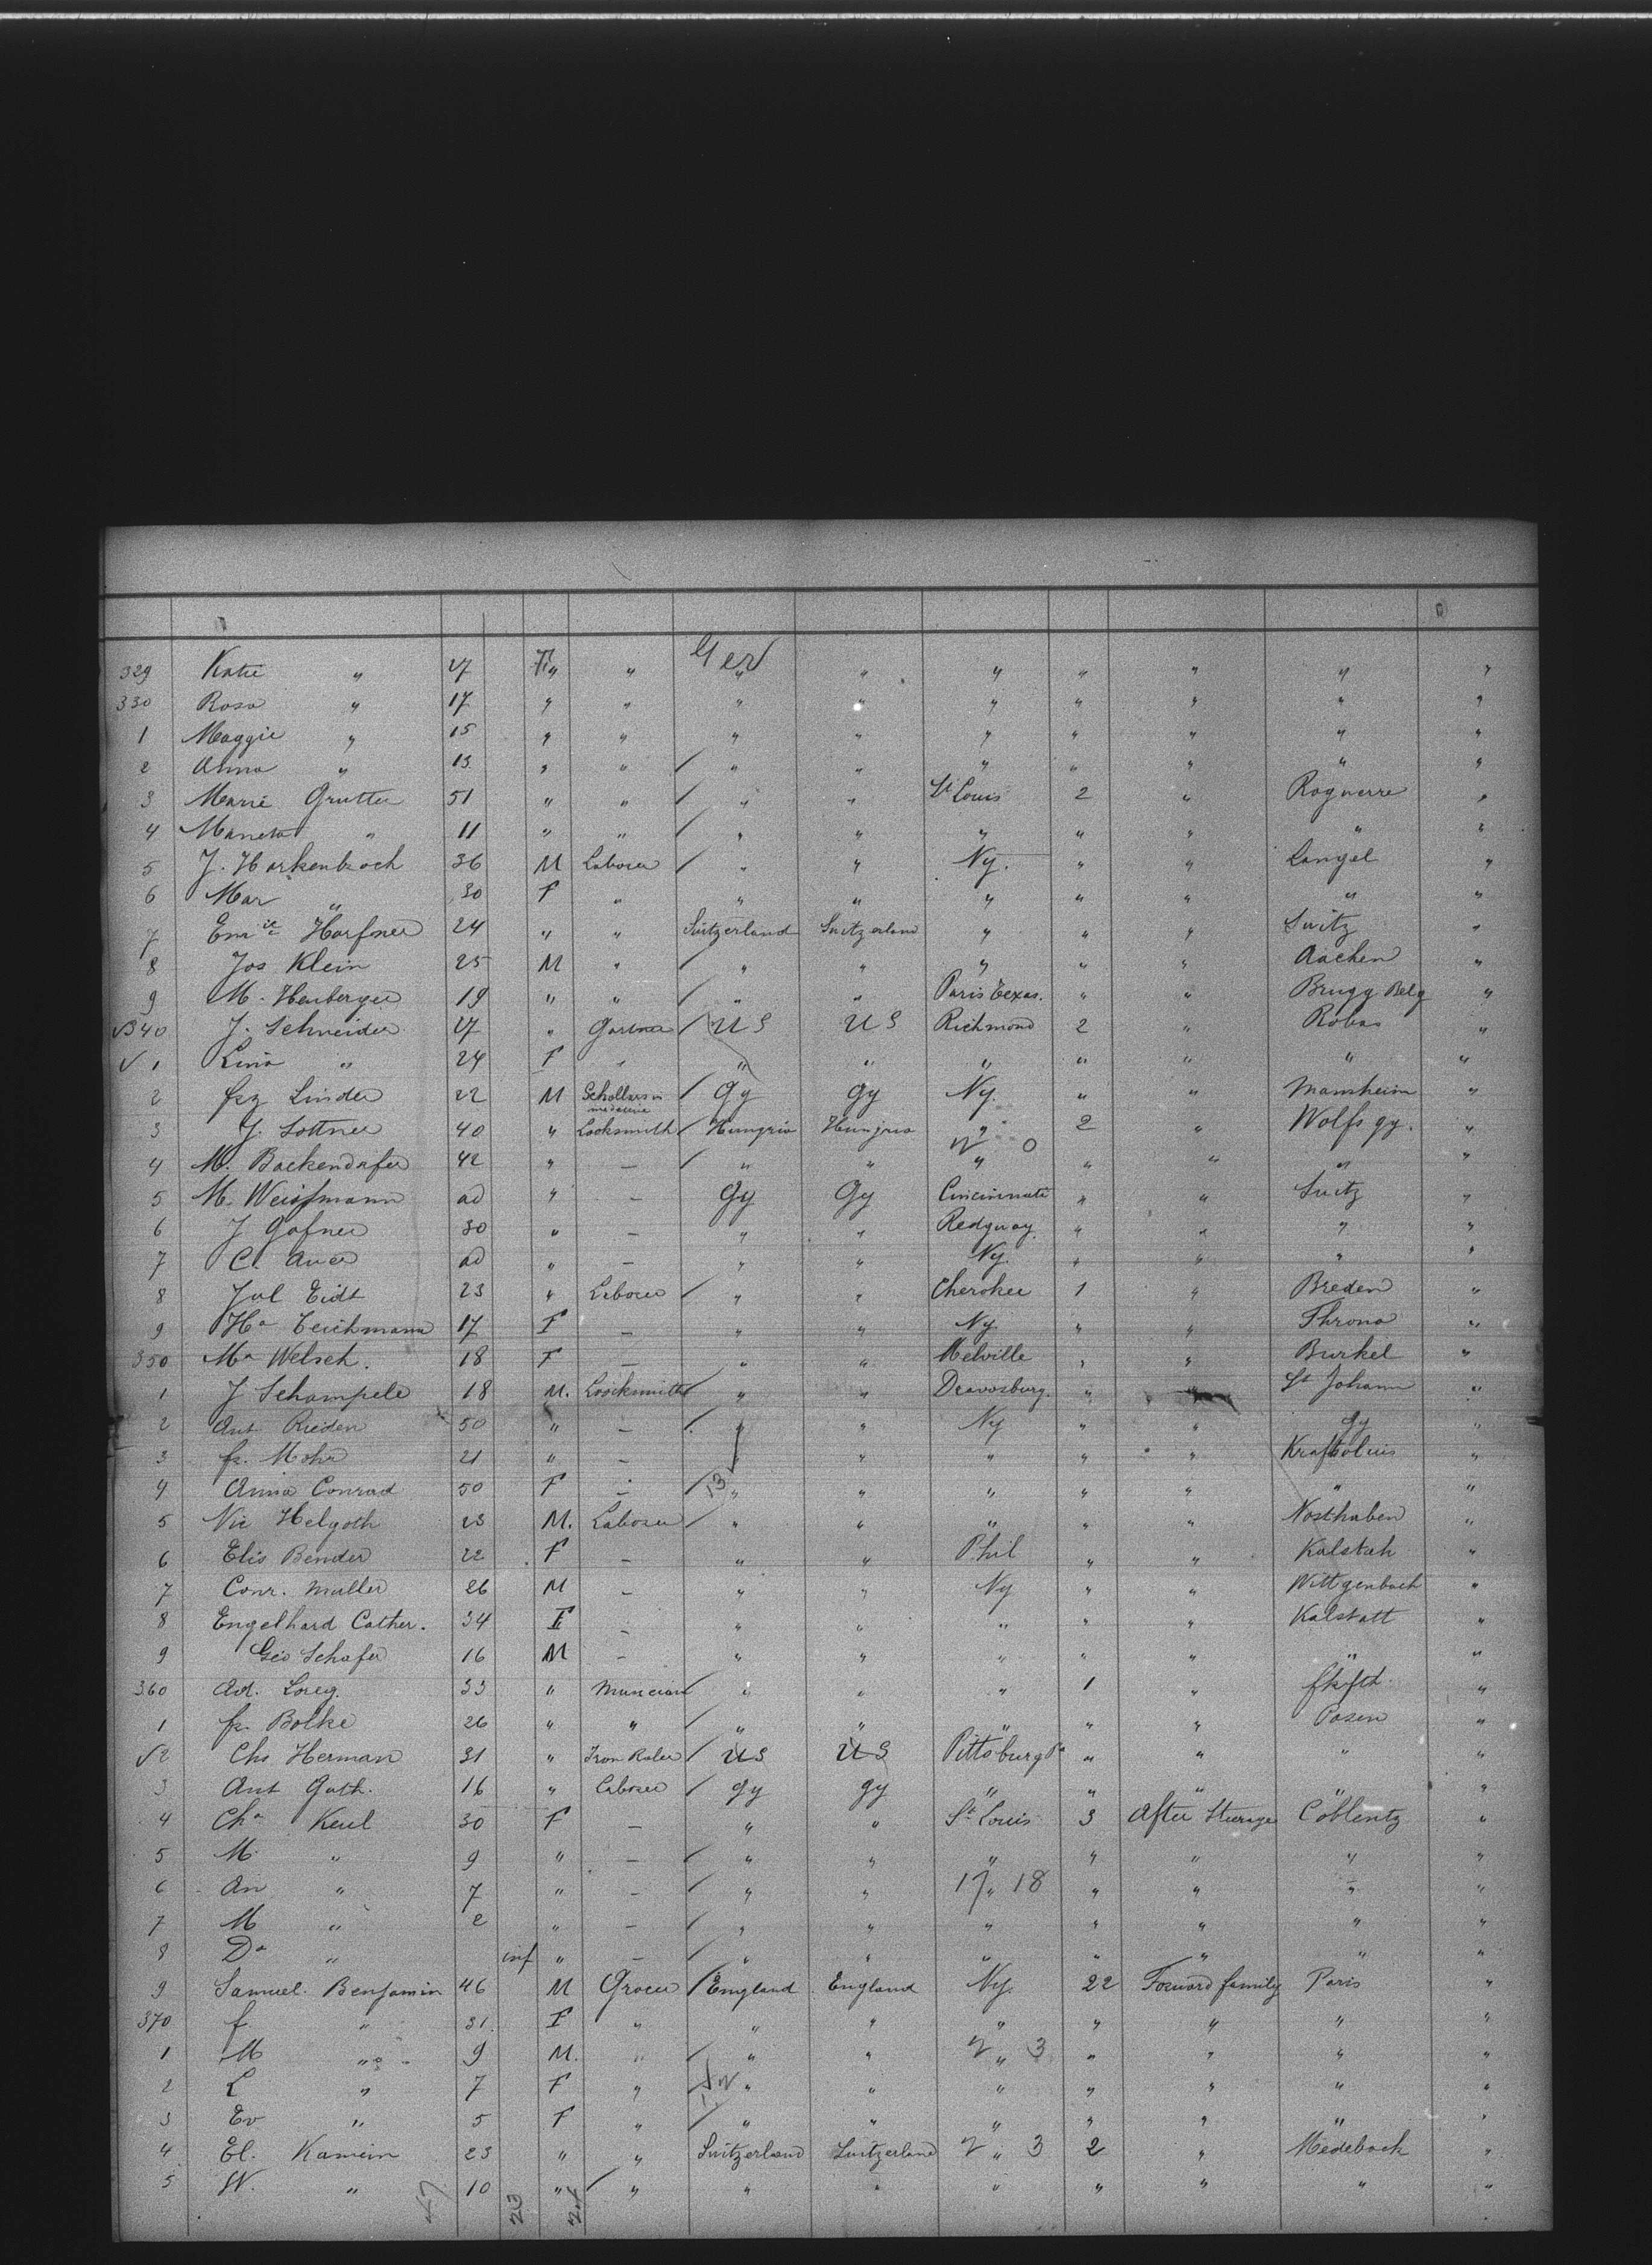 Ger
329 Katie " 27 F " " " " " " " " "
330 Rosa " 17 " " " " " " " " "
1 Maggie " 15 " " " " " " " " "
2 Anna " 13 " " / " " " " " " "
3 Marie Grutter 51 " " / " " St Louis 2 " Roguerre "
4 " 11 " " / " " " " " " "
5 J. Harkenbach 36 M Laborer / " " Ny. " " Langel "
6 Mar " 30 F " " " " " " " "
7 Emie Harfner 24 " " Switzerland Switzerland " " " Switz "
8 Jos Klein 25 M " / " " " " " Aachen "
9 M. Heuberger 19 " " / " " Paris Texas. " " Brugg Belg "
√340 J. Schneider 27 " / U S U S Richmond 2 " Robas "
√ 1 Lina " 24 F " " " " " " " "
2 frz Linder 22 M Schollars in / Gy Gy Ny. " " Mannheim "
3 J. Lottner 40 " Locksmith / Hungria Hungria " 2 " Wolfs gy. "
4 M. Backendorfer 42 " – / " " " " " " "
5 M. Weissmann ad " – Gy Gy Cincinnati " " Switz "
6 J Gafner 30 " – " " Redguay " " " "
7 C. Auer ad " – " " Ny. " " " "
8 Jul Eidt 23 " Laborer / " " Cherokee 1 " Breden "
9 Ha Teichmann 17 F – " " Ny " " Throna "
350 Ma Welsch. 18 F – " " Melville " " Burkel "
1 J Schampele 18 M. Loocksmith / " " Dravosburg. " " St Johann "
2 Ant Rieden 50 " – / " " Ny " " Gy "
3 fr. Mohr 21 " – " " " " " "
4 Anna Conrad 50 F – / 13 " " " " " " "
5 Nic Helgoth 23 M. Laborer / " " " " " Nosthaben "
6 Elis Bender 22 F – " " Phil " " Kalstah "
7 Conr. Muller 26 M – " " Ny " " Wittgenbach "
8 Engelhard Cather. 34 F – " " " " " Kalstatt "
9 Geo Schafer 16 M – " " " " " " "
360 Ad. Loreg. 33 " Muncian / " " " 1 " fkfth "
1 fr. Bolke 26 " " / " " " " " Posen "
√2 Chs Herman 31 " Iron Roler / U S U S Pittsburg Pa " " " "
3 Ant Guth. 16 " Laborer / gy gy " " " " "
4 Cha Keul 30 F – " " St Louis 3 After Steerage Coblentz "
5 M. " 9 " – / " " " " " " "
6 An " 7 " – / " " 17 " 18 " " " "
7 M " 2 " – / " " " " " " "
8 Da " inf " – / " " " " " " "
9 Samuel Benjamin 46 M Grocer / England England Ny. 22 Forward family Paris "
370 f " 31. F " " " " " " " "
1 M " 9 M. " / " " " 3 " " " "
2 L " 7 F " " " " " " " "
3 Ev " 5 F " / " " " " " " "
4 El. Kamein 23 " " Switzerland Switzerland " 3 2 " Medebach "
5 W. " 10 " / " " " " " " " "
47 23 24